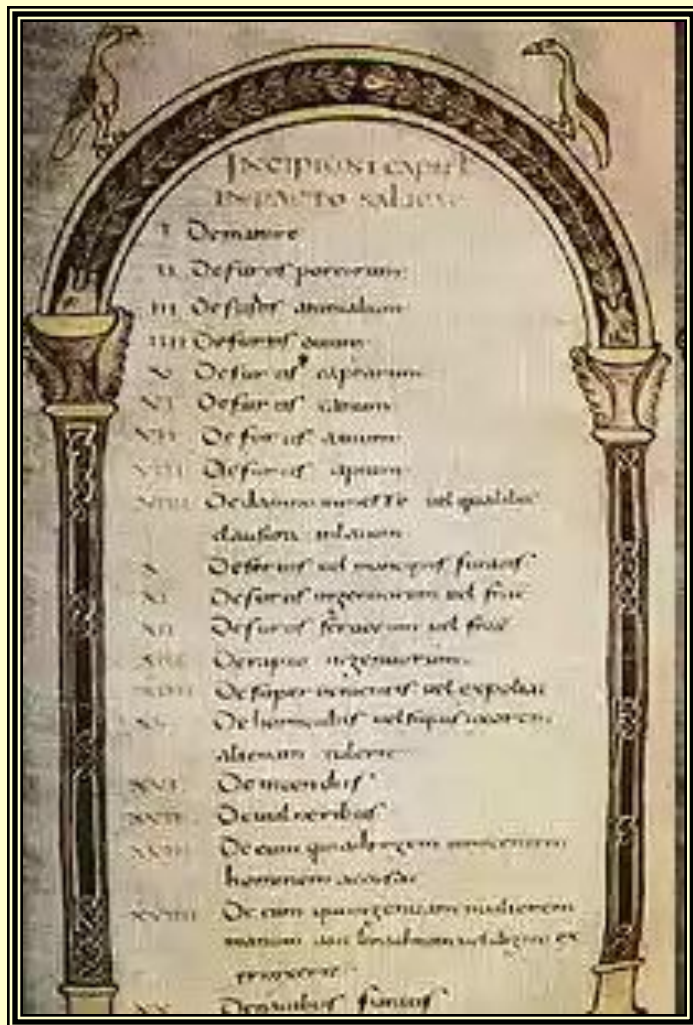 INCIPIUNT CAPITL
IN PACTO SALICAE
I De mannire
II De furtis porcorum
III De furtis animalium
IIII De furtis ouium
V De furtis caprarum
VI De furtis canum
VII De furtis auium
VIII De furtis apium
VIIII De damno in messe uel qualibet
clausura
X De seruis uel mancipiis furatis
XI De furtis ingenuorum uel
XII De furtis seruorum uel
XIII De rapto ingenuorum
XIIII De superuentis uel expoliat
XV De homicidiis uel si quis uxorem
alienam tulerit
XVI De incendiis
XVII De uulneribus
XVIII De eum qui innocentem
hominem accusat
XVIIII De eum qui mulierem
manum uel digitum ex
XX De nauibus furatis